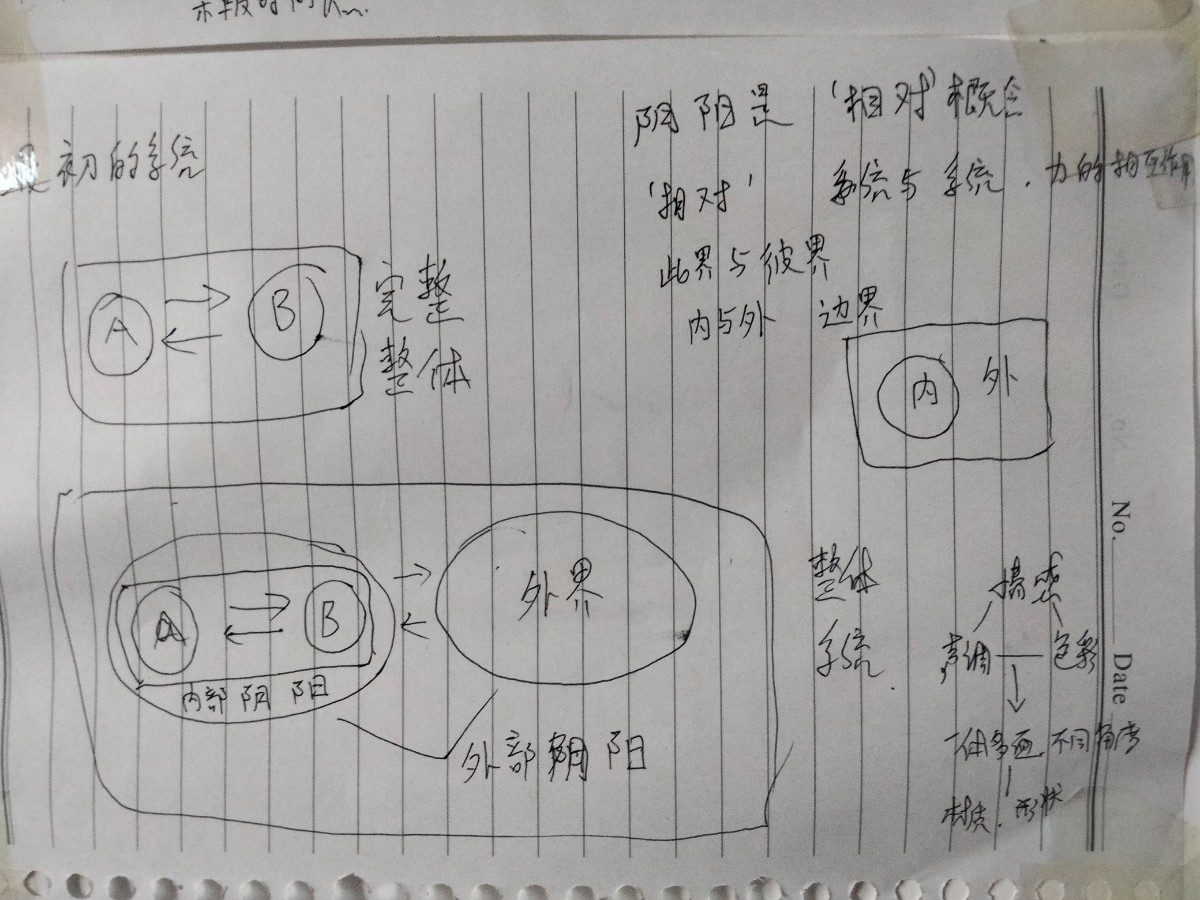 初的系统
A B
完整
整体
阴阳是 '相对' 概念
'相对' 系统与系统，力的相互作用
此界与彼界
内与外 边界
内 外
A B
内部阴阳
外界
外部阴阳
整体
系统
情感
声调 色彩
一体多面，不同角度
材质，形状
No.
Date